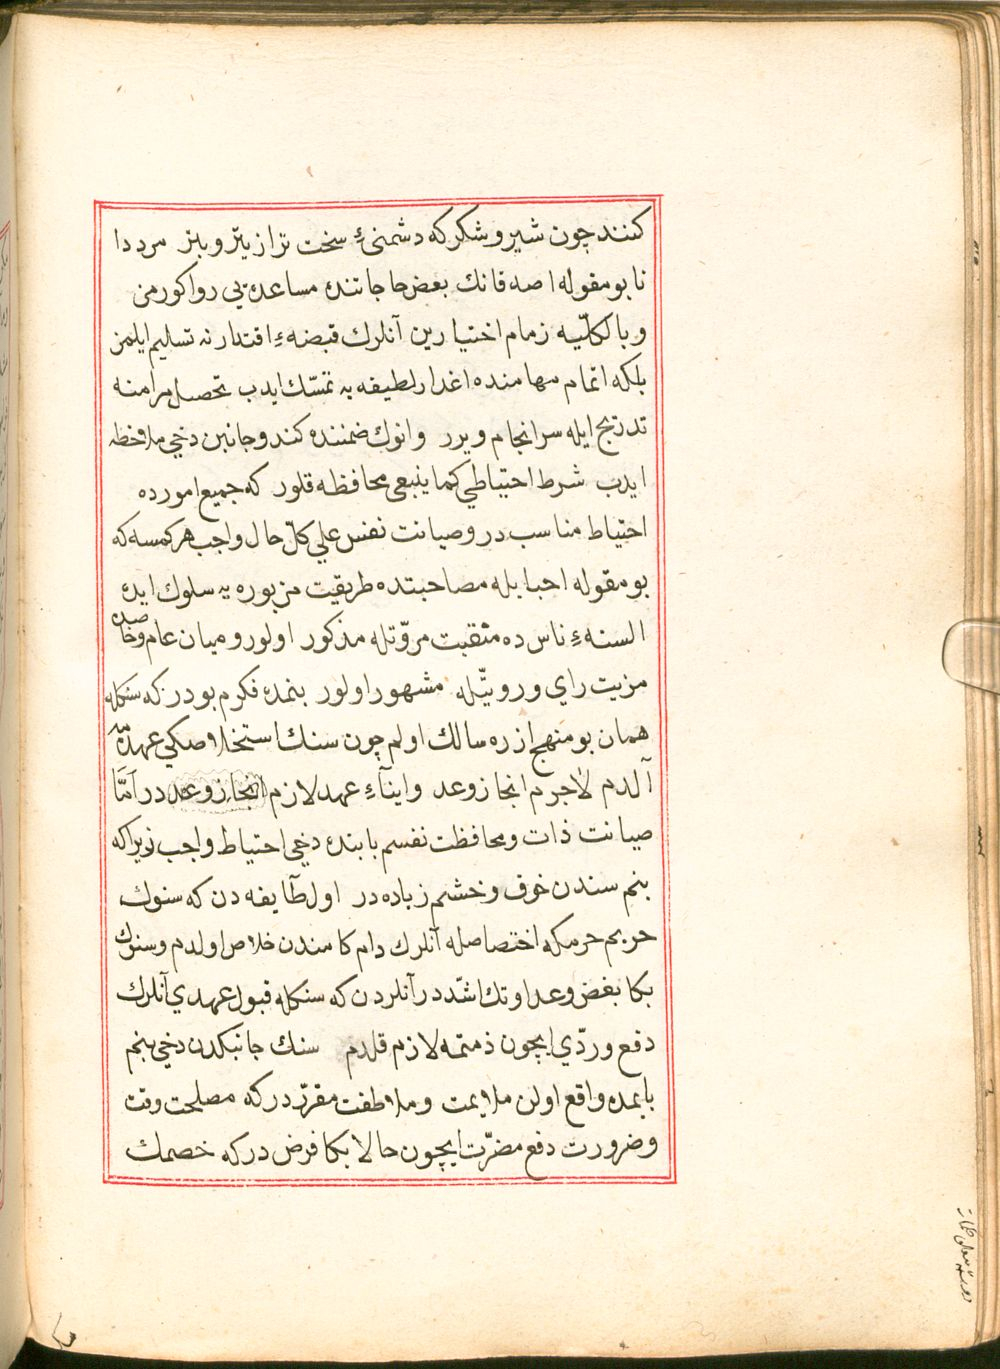 كنند چون شير و شكر كه دشمنئ سخت تر از يتر و بتر مرد دا
نا بو مقوله اصدقانك بعض حاجاتنده مساعده يى روا كورمز
و بالكلّيه زمام اختيارين آنلرك قبضهء اقتدارنه تسليم ايلمز
بلكه اتمام مهامنده اعذار لطيفه يه تمسّك ايدب تحصيل مرامنه
تدريج ايله سرانجام ويرر وانوك ضمننده كندو جانبن دخي ملاحظه
ايدب شرط احتياطي كما ينبغى محافظه قلور كه جميع امورده
احتياط مناسب در و صيانت نفس علي كلّ حال واجب هر كمسه كه
بو مقوله احبابله مصاحبتده طريقت مزبوره يه سلوك ايده
السنهء ناس ده منقبت مروّتله مذكور اولور و ميان عام و خاصده
مزيت راي و رويّتله مشهور اولور بنمده فكرم بودر كه سنكله
همان بو منهج ازره سالك اولم چون سنك استخلاصكي عهده مه
آلدم لاجرم انجاز وعد و ايفآء عهد لازم انجاز وعد در امّا
صيانت ذات و محافظت نفسم بابنده دخي احتياط واجب زيرا كه
بنم سندن خوف و خشتم زياده در اول طآيفه دن كه سنوك
حريم حرمكه اختصاصله آنلرك دام كامندن خلاص اولدم و سنوك
بكا بغض و عداوتك اشّد در آنلردن كه سنكله قبول عهدي آنلرك
دفع و ردّي ايچون ذمتمه لازم قلدم سنك جانبكدن دخي بنجم
بابمده واقع اولن ملايمت و ملاطفت مقرّر در كه مصلحت وقت
و ضرورت دفع مضرّت ايچون حالا بكا فرض در كه خصمك